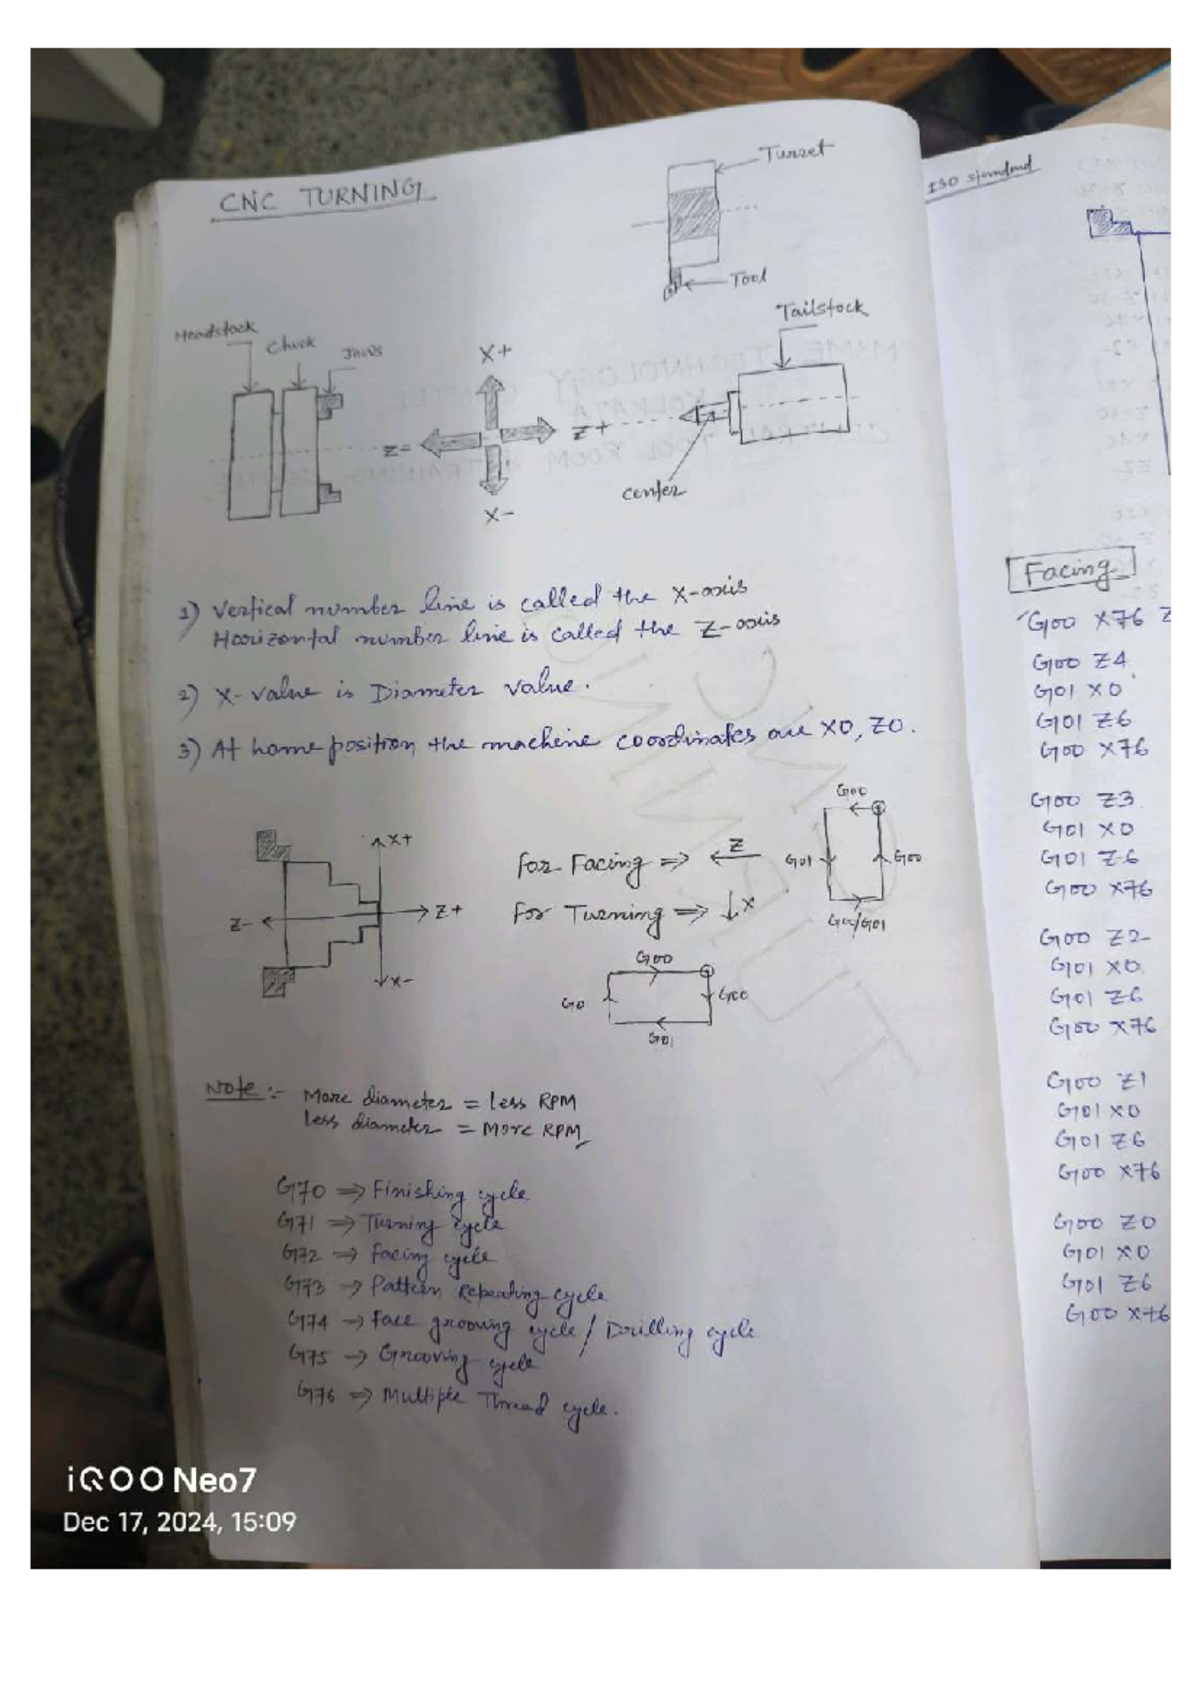 CNC TURNING
Turret
Tool
Headstock
Chuck
Jaws
X+
Z-
Z+
X-
Tailstock
Center
1) Vertical number line is called the X-axis
Horizontal number line is called the Z-axis
2) X-value is Diameter value.
3) At home position the machine coordinates are X0, Z0.
X+
Z-
Z+
X-
For Facing => Z
For Turning => X
G00
G01
G00
G00/G01
G00
G0
G00
G01
Note :- More diameter = less RPM
less diameter = More RPM
G70 => Finishing cycle
G71 => Turning cycle
G72 -> facing cycle
G73 -> Pattern Repeating cycle
G74 -> Face grooving cycle / Drilling cycle
G75 -> Grooving cycle
G76 => Multiple Thread cycle.
ISO standard
Facing
G00 X76 Z
G00 Z4
G01 X0
G01 Z6
G00 X76
G00 Z3
G01 X0
G01 Z6
G00 X76
G00 Z2
G01 X0
G01 Z6
G00 X76
G00 Z1
G01 X0
G01 Z6
G00 X76
G00 Z0
G01 X0
G01 Z6
G00 X76
iQOO Neo7
Dec 17, 2024, 15:09